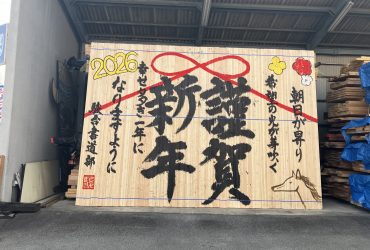 朝日が昇り
希望の光が芽吹く
謹賀
新年
幸せな一年に
なりますように
書道部
2026